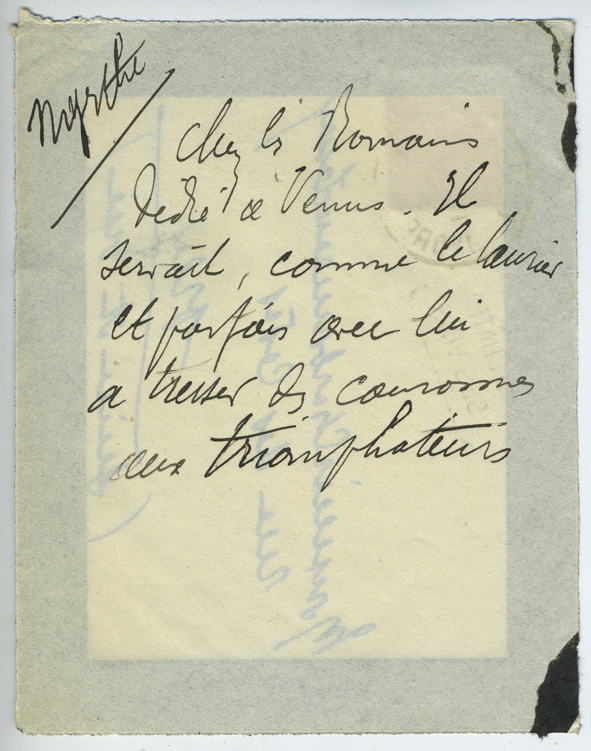 Myrthe
Chez les Romains
dédié à Vénus. Il
servait, comme le laurier
et parfois avec lui
a tresser des couronnes
aux triomphateurs